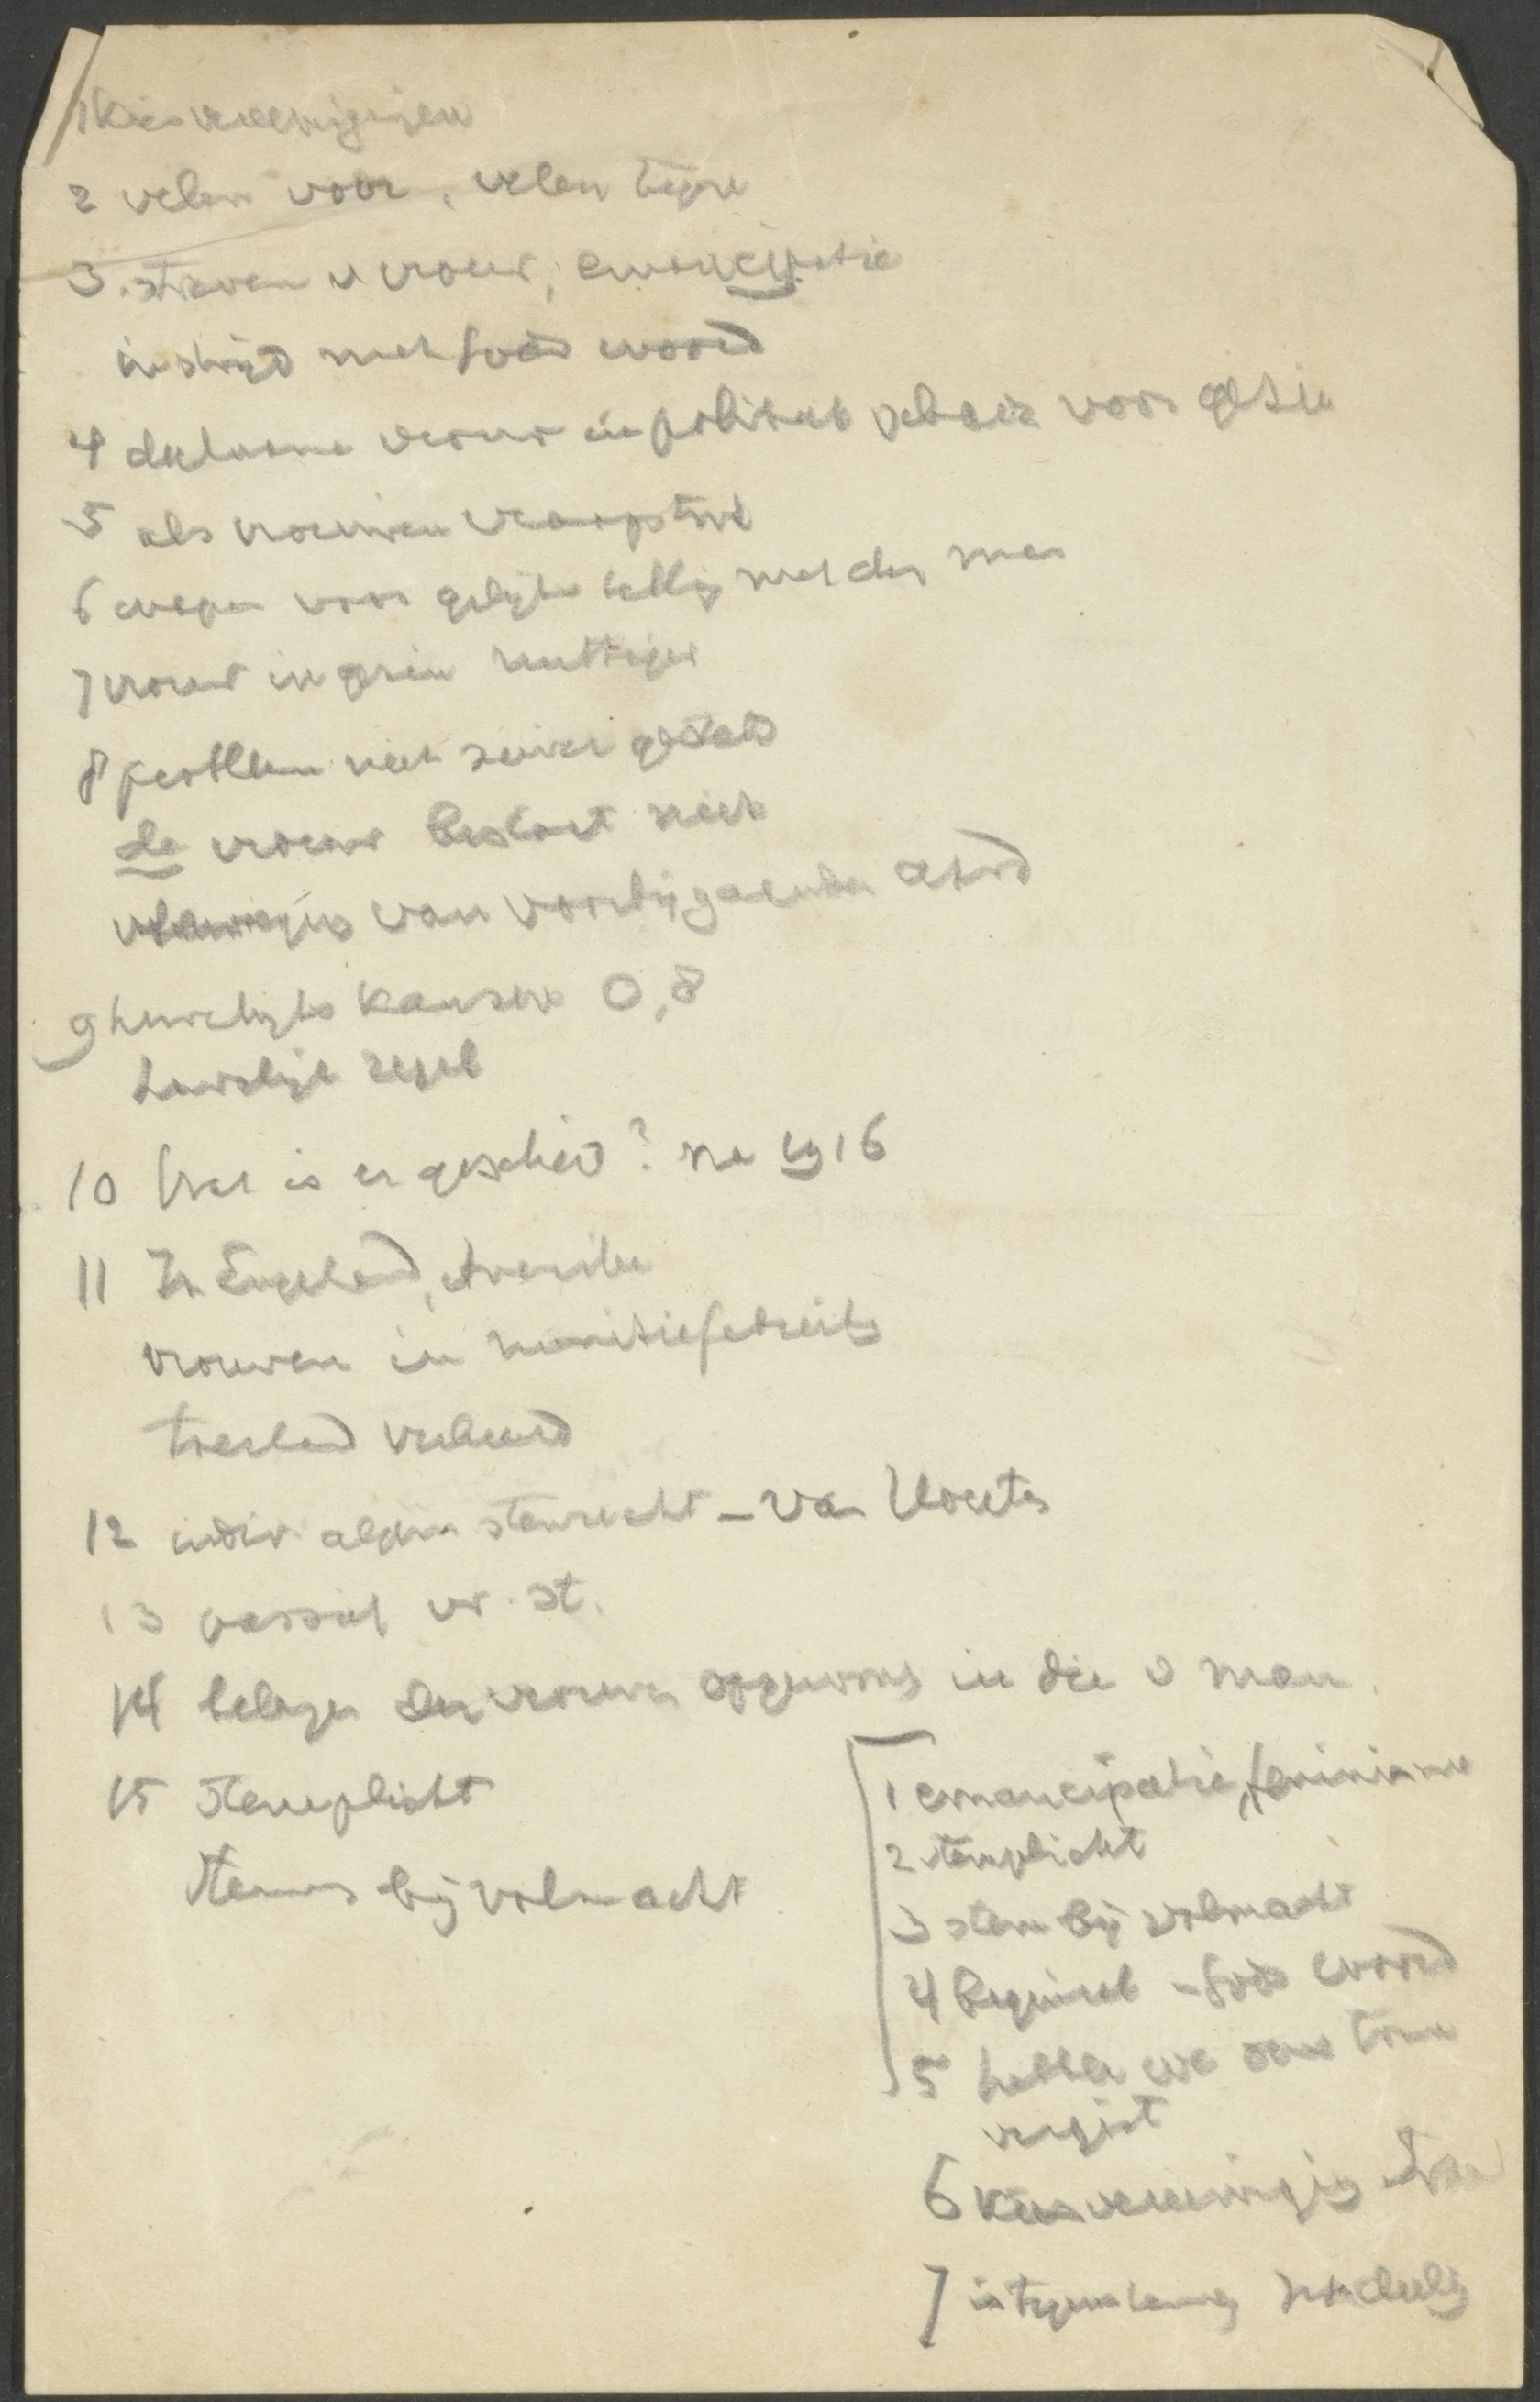 1 Kiesvereenigingen
2 velen voor, velen tegen
3 streven v vrouw, emancipatie
in strijd met Gods woord
4 deelname vrouw in politiek gebeuren voor gezin
5 als vrouwen vooropstond
6 wapen voor gelijkstelling met den man
7 vrouw in gezin nuttiger
8 probleem niet zuiver gesteld
de vrouw bestaat niet
van voorbijgaanden aard
9 huwelijks kansen 0,8
huwelijk regel
10 Wat is er geschied? na 1916
11 In Engeland, Amerika
vrouwen in munitiefabrieks
Friesland verbeurd
12 indiv algem stemrecht - van Houten
13 passief vr. st.
14 belangen der vrouwen opgenomen in die v man.
15 Stemplicht
Stemmen bij volmacht
1 emancipatie, feminisme
2 stemplicht
3 stem bij volmacht
4 beginsel - Gods woord
5 hebben we ons toen
vergist
6 Kiesvereeniging
7 is tegenstand